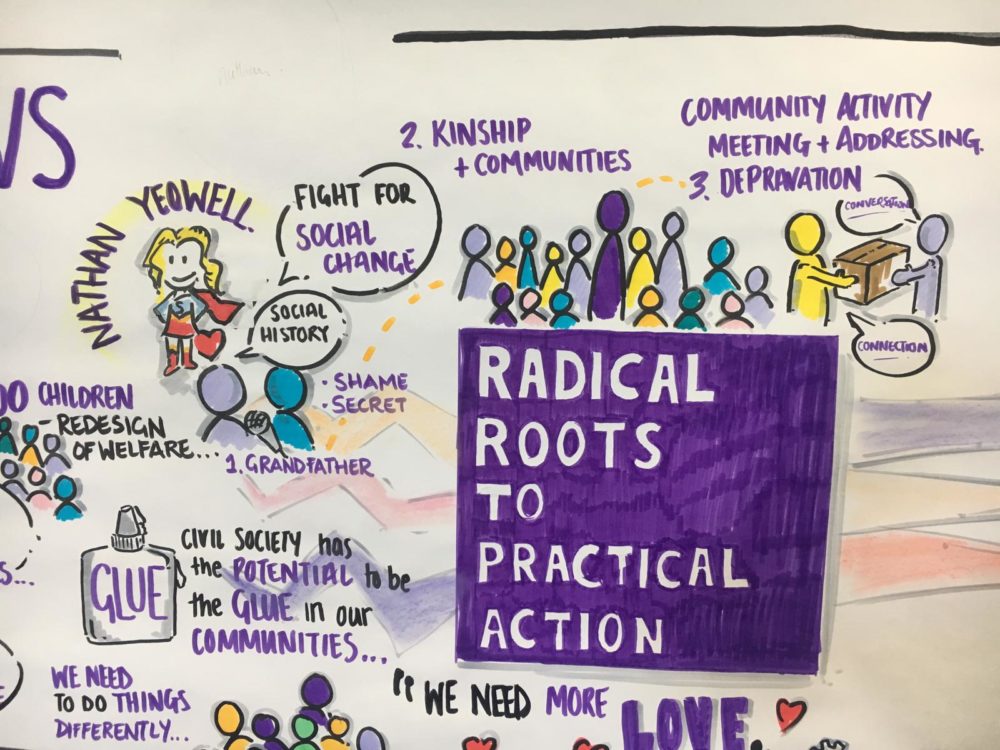 NATHAN YEOWELL
FIGHT FOR
SOCIAL
CHANGE
SOCIAL
HISTORY
• SHAME
• SECRET
1. GRANDFATHER
2. KINSHIP
+ COMMUNITIES
COMMUNITY ACTIVITY
MEETING + ADDRESSING
3. DEPRAVATION
CONVERSATION
CONNECTION
CHILDREN
- REDESIGN
OF WELFARE...
RADICAL
ROOTS
TO
PRACTICAL
ACTION
GLUE
CIVIL SOCIETY has
the POTENTIAL to be
the GLUE in our
COMMUNITIES...
WE NEED
TO DO THINGS
DIFFERENTLY...
"WE NEED MORE
LOVE